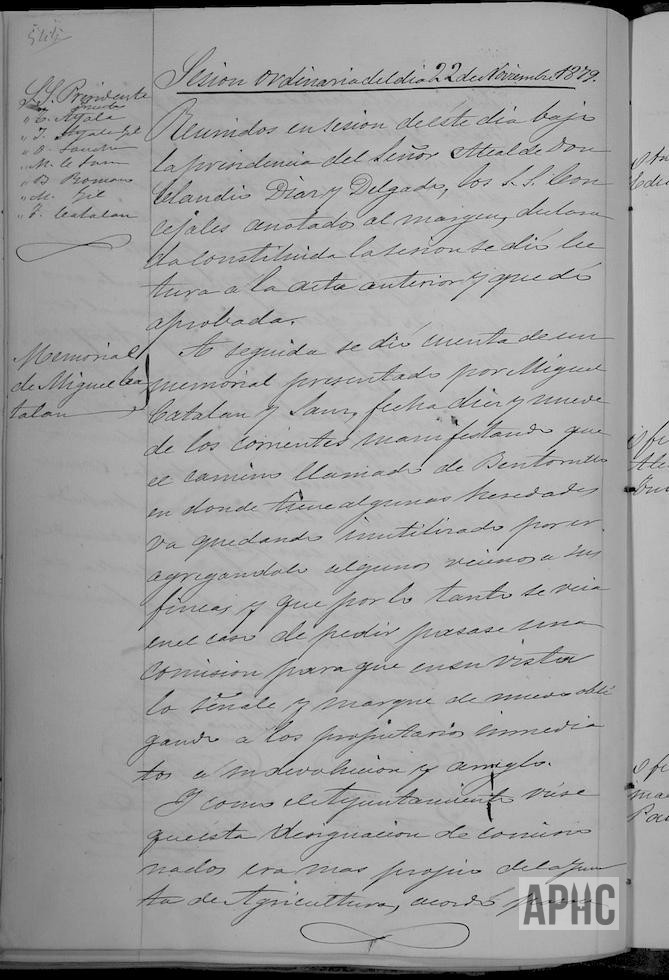 Sesion ordinaria del dia 22 de Noviembre 1879.
S.S. Presidente
" C. Ayala
" J. Ayala Gil
" M.
" B. Romano
" M. Gil
" F. Catalan
Reunidos en sesion de éste dia bajo
la presidencia del Señor Alcalde Don
Claudio Diaz y Delgado, los S.S. Con
cejales anotados al margen, declara
da constituida la sesion se dió lec
tura a la acta anterior y quedó
aprobada.
Memorial
de Miguel Ca
talan
A seguida se dió cuenta de un
memorial presentado por Miguel
Catalan y Sanz, fecha diez y nueve
de los corrientes manifestando que
el camino llamado de
en donde tiene algunas heredades
va quedando inutilizado por ir
agregandole algunos vecinos a sus
fincas y que por lo tanto se veia
en el caso de pedir pasase una
comision para que en su vista
lo señale y marque de nuevo obli
gando a los propietarios inmedia
tos a su devolucion y arreglo.
Y como el Ayuntamiento viese
que esta designacion de comisio
nados era mas propio de la Jun
ta de Agricultura, acordó
APHC